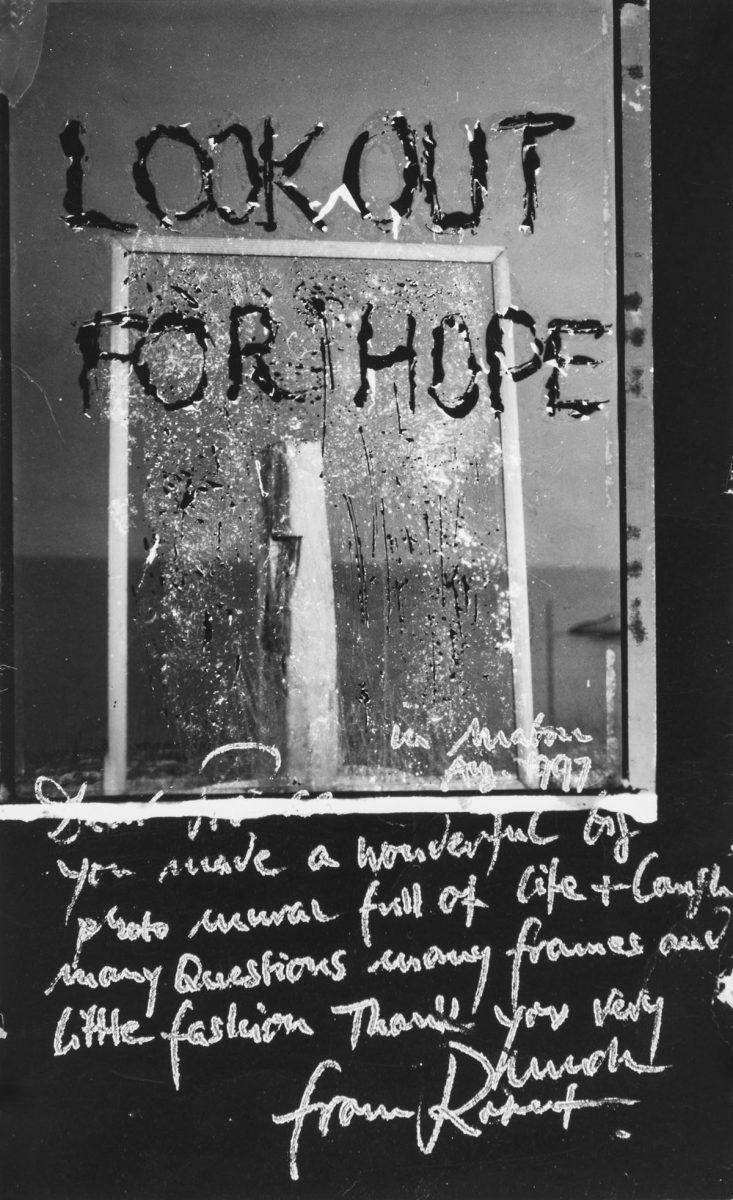 LOOK OUT
FOR HOPE
Aug. 1997
Dear
you made a wonderful big
photo mural full of life +
many Questions many frames and
little fashion Thank you very
much
from Robert